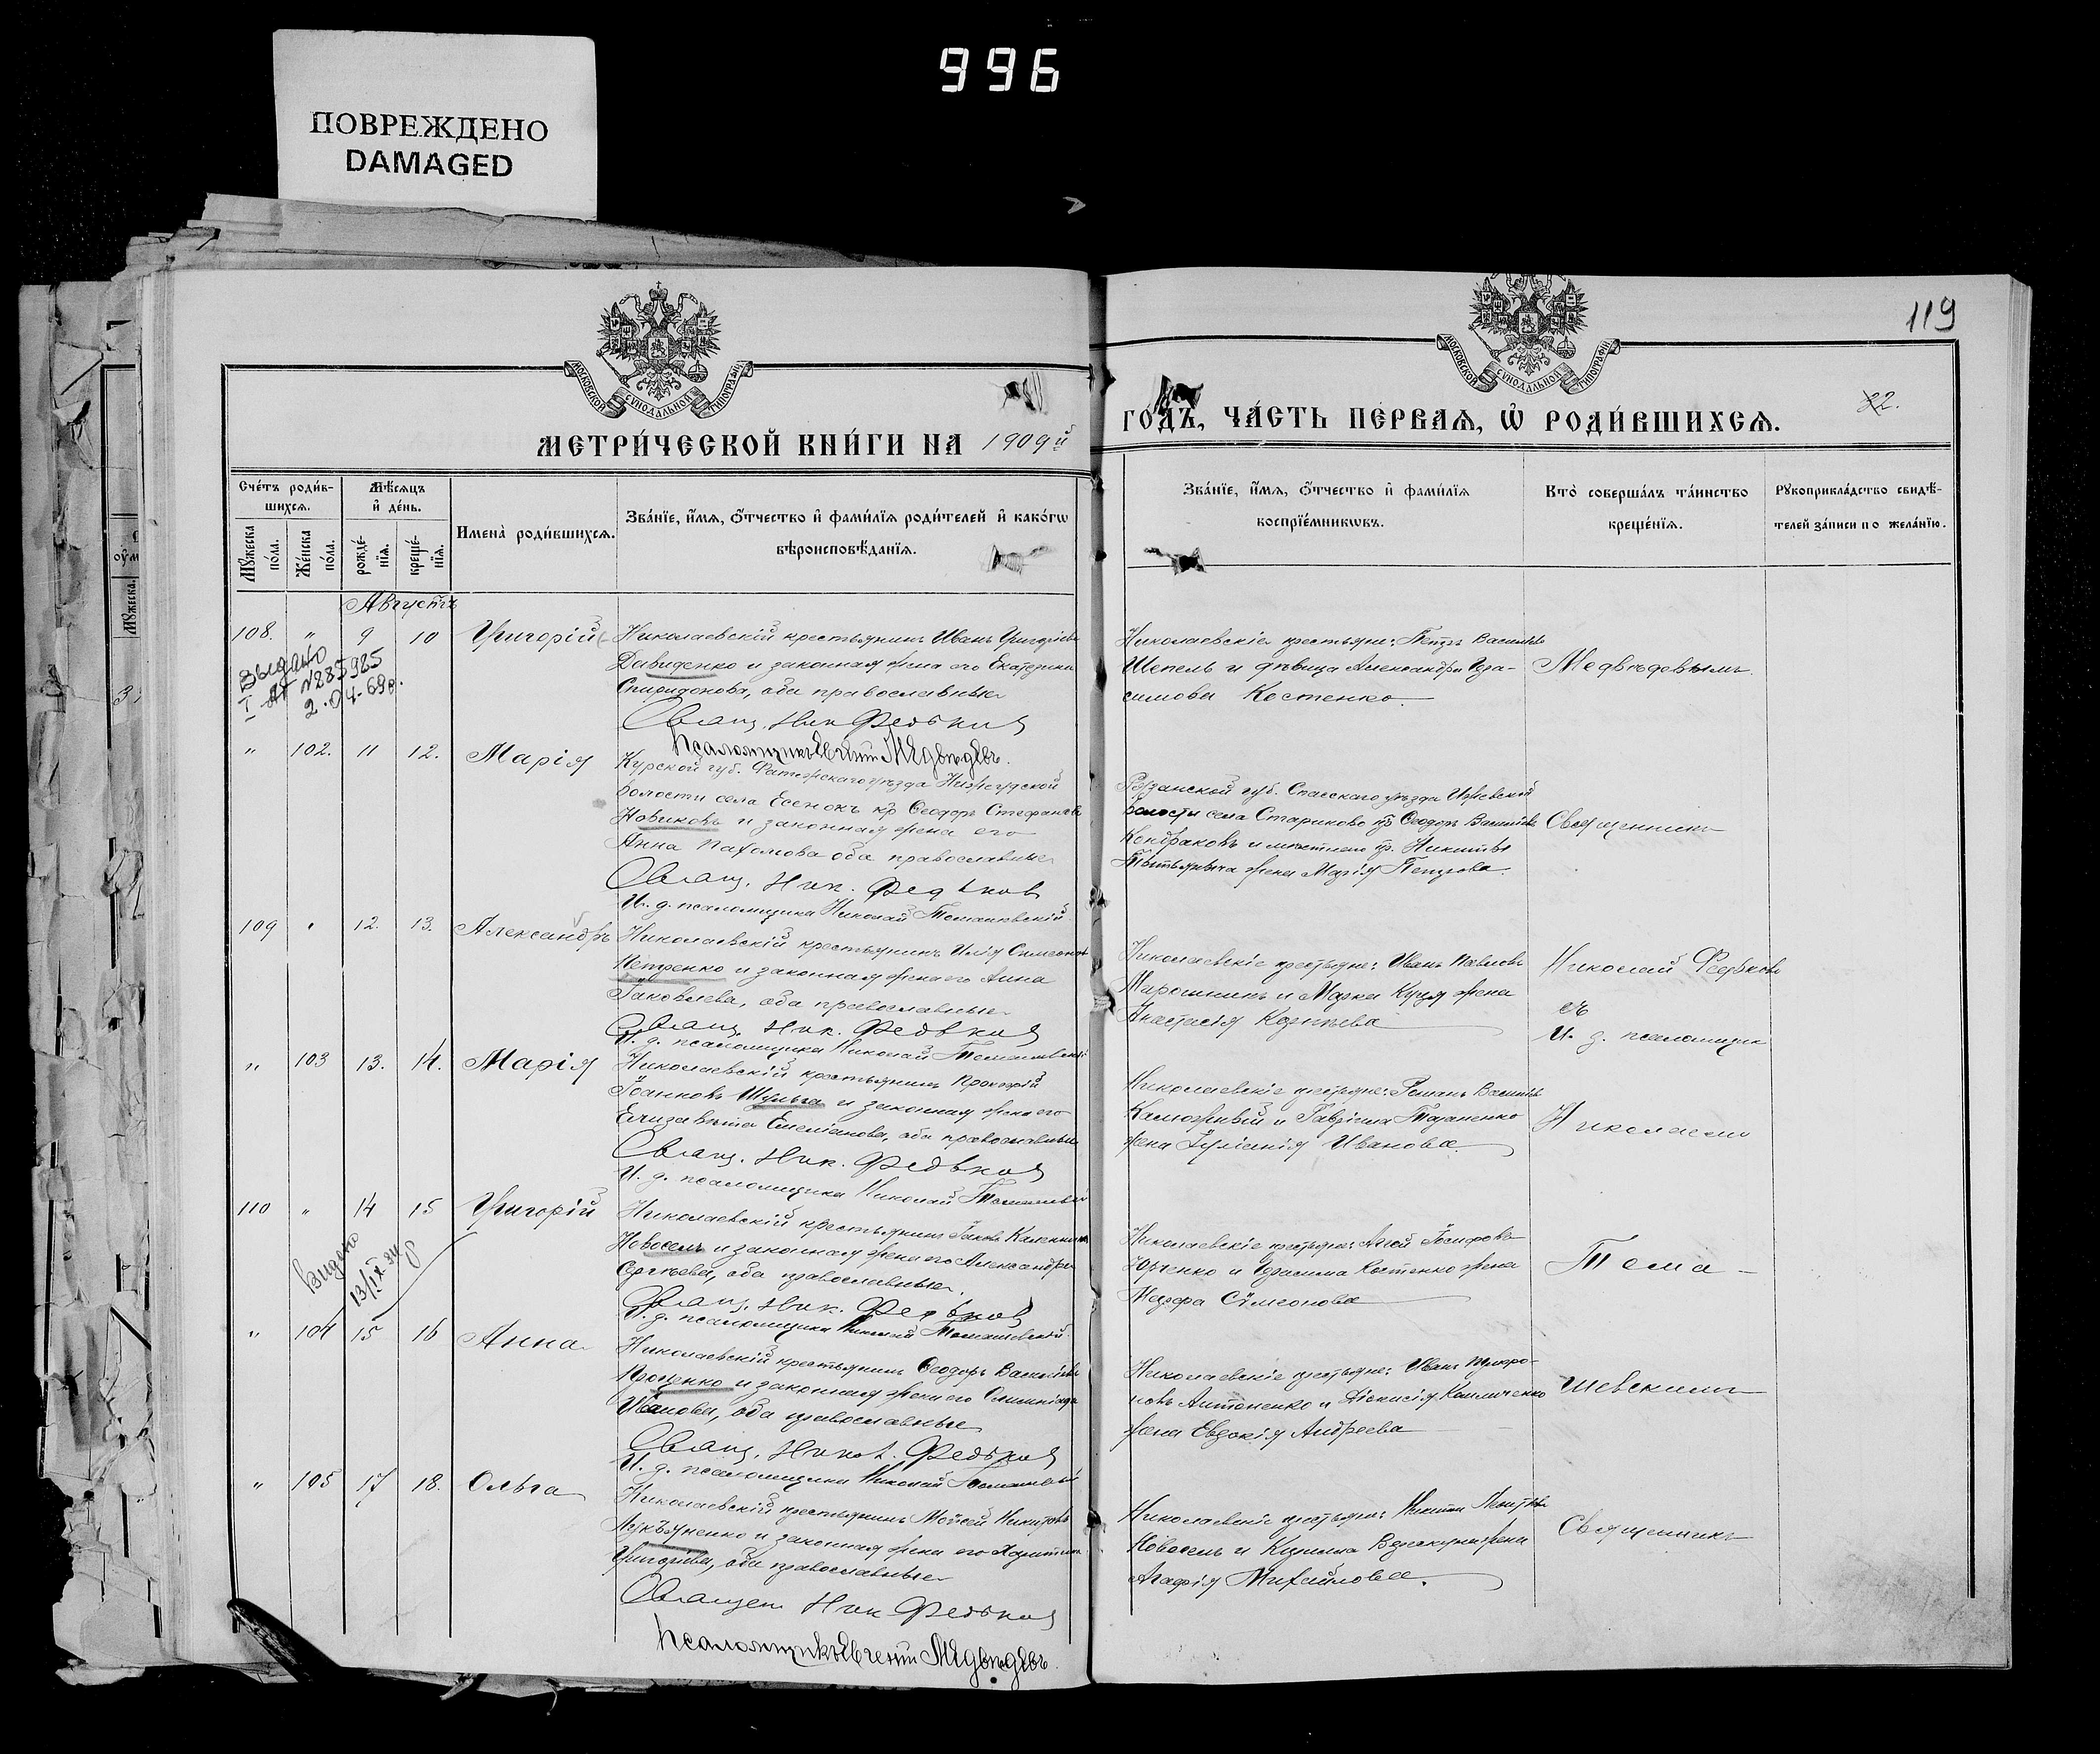 996
ПОВРЕЖДЕНО
DAMAGED
119
МОСКОВСКОЙ СѴНОДАЛЬНОЙ ТИПОГРАФІИ
МОСКОВСКОЙ СѴНОДАЛЬНОЙ ТИПОГРАФІИ
МЕТРИ́ЧЕСКОЙ КНИ́ГИ НА 1909й
ГОДЪ, ЧА́СТЬ ПЕ́РВАЯ, Ѿ РОДИ́ВШИХСЯ.
22.
Сче́тъ роди́в-
шихся.
Мѣ́сяцъ
и҆ де́нь.
Мꙋ́жеска по́ла.
Же́нска по́ла.
рожде́-
нїя.
креще́-
нїя.
Имена̀ роди́вшихся.
Зва́нїе, и҆́мя, ѻ҆́тчество и҆ фами́лїя роди́телей и҆ како́гѡ
вѣроисповѣ́данїя.
Зва́нїе, и҆́мя, ѻ҆́тчество и҆ фами́лїя
воспрїе́мникѡвъ.
Кто̀ соверша́лъ та́инство
креще́нїя.
Рꙋкоприкла́дство свидѣ́-
телей за́писи по жела́нїю.
Августъ
108. " 9 10 Григорій
Николаевскій крестьянинъ Иванъ Григоріевъ
Давиденко и законная жена его Екатерина
Спиридонова, оба православные
Свящ. Ник Федьков
Псаломщикъ Евгеній Медвѣдевъ.
Николаевскіе крестьяне: Петръ Васильевъ
Шепель и дѣвица Александра Гера-
симова Костенко.
Медвѣдевымъ.
Выдано
I АН №285985
2.04-69г.
" 102. 11 12. Марія
Курской губ. Фатежскаго уѣзда Нижегудской
волости села Есенокъ кр Ѳеодоръ Стефановъ
Новиковъ и законная жена его
Анна Пахомова оба православные
Свящ. Ник. Федьков
И. д. псаломщика Николай Томашевскій
Рязанской губ. Спасскаго уѣзда Ижевской
волости села Стариково кр Ѳеодоръ Васильевъ
Кондраковъ и мѣстнаго кр. Никиты
жена Марія Петрова
Священникъ
109 " 12. 13. Александръ
Николаевскій крестьянинъ Илія Симеоновъ
Петренко и законная жена его Анна
Іаковлева, оба православные
Свящ. Ник. Федьков
И. д. псаломщика Николай Томашевскій
Николаевскіе крестьяне: Иванъ Павловъ
Мирошникъ и Марка Куця жена
Анастасія Корнѣева
Николай Федьковъ
съ
И. д. псаломщик
" 103 13. 14. Марія
Николаевскій крестьянинъ Прокопій
Іоанновъ Шульга и законная жена его
Елизавета Емеліанова, оба православные
Свящ. Ник. Федьков
И. д. псаломщика Николай Томашевскій
Николаевскіе крестьяне: Романъ Васильевъ
Калюжный и Гавріила Тараненко
жена Іуліанія Иванова.
Николаем
110 " 14 15 Григорій
Николаевскій крестьянинъ Іаковъ Каленниковъ
Новосель и законная жена его Александра
Сергѣева, оба православные.
Свящ. Ник. Федьков
И. д. псаломщика Николай Томашевскій
Юрченко и Герасима Костенко жена
Симеонова
Тома-
Видано
13/IX 34
" 104 15 16 Анна
Николаевскій крестьянинъ Ѳеодоръ Васильевъ
Проценко и законная жена его Олимпіада
Иванова, оба православные
Свящ. Ник. Федьков
И. д. псаломщика Николай Томашевскій
Николаевскіе крестьяне: Иванъ
Антоненко и Діонисія
жена Евдокія Андреева
шевскимъ
" 105 17 18. Ольга
Николаевскій крестьянинъ Мойсей Никитовъ
Лукъяненко и законная жена его Харитина
Григоріева, оба православные
Священ Ник Федьков
Псаломщикъ Евгеній Медвѣдевъ.
Николаевскіе крестьяне: Никита
Новосель и Кирилла жена
Агафія Михайлова.
Священникъ